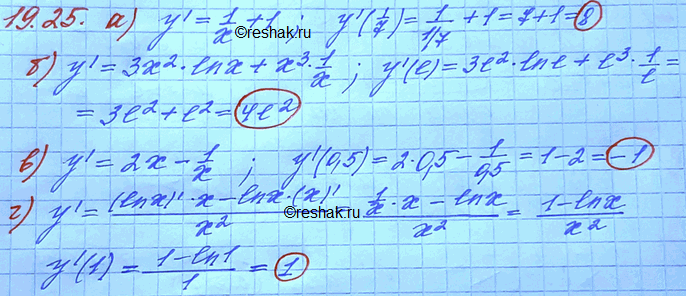 19.25. а) y' = 1/x + 1 ; y'(1/7) = 1/(1/7) + 1 = 7 + 1 = 8
©reshak.ru
б) y' = 3x² · lnx + x³ · 1/x ; y'(e) = 3e² · lne + e³ · 1/e =
= 3e² + e² = 4e²
в) y' = 2x - 1/x ; y'(0,5) = 2 · 0,5 - 1/0,5 = 1 - 2 = -1
г) y' = ((lnx)' · x - lnx · (x)')/x² = (1/x · x - lnx)/x² = (1 - lnx)/x²
©reshak.ru
y'(1) = (1 - ln1)/1 = 1